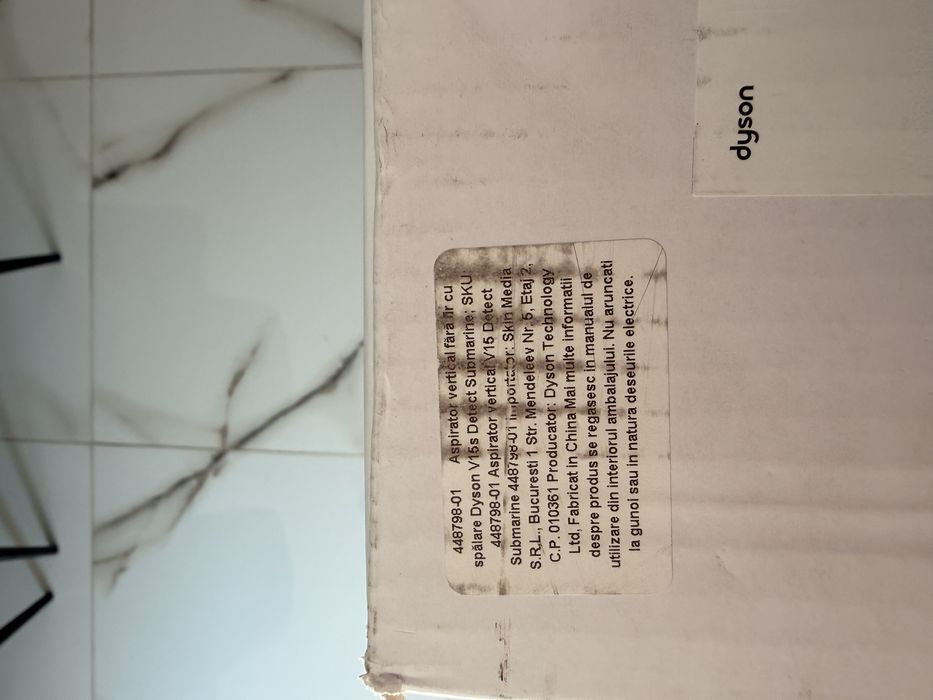 dyson
448798-01 Aspirator vertical fără fir cu
spălare Dyson V15s Detect Submarine; SKU:
448798-01 Aspirator vertical V15 Detect
Submarine 448798-01 Importator: Skin Media
S.R.L., Bucuresti 1 Str. Mendeleev Nr. 5, Etaj 2,
C.P. 010361 Producator: Dyson Technology
Ltd, Fabricat in China Mai multe informatii
despre produs se regasesc in manualul de
utilizare din interiorul ambalajului. Nu aruncati
la gunoi sau in natura deseurile electrice.